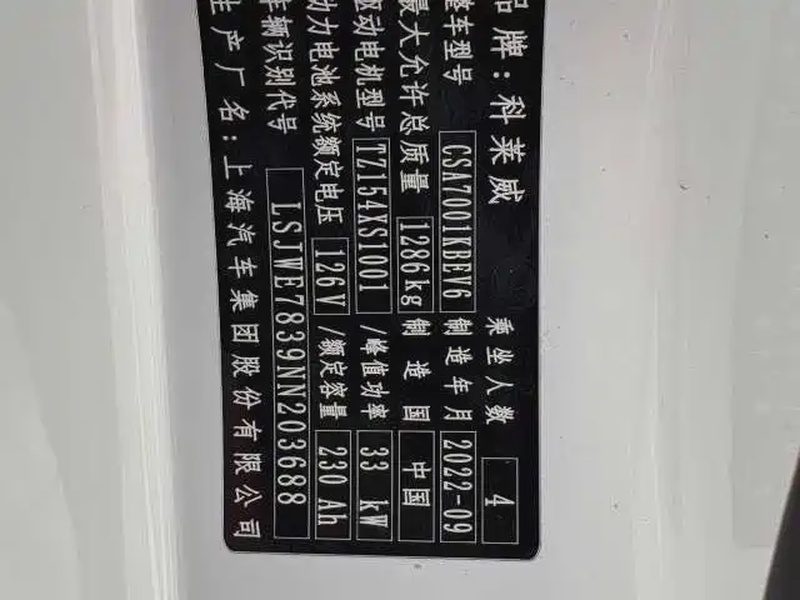 品牌:科莱威 乘坐人数 4
整车型号 CSA7001KBEV6 制造年月 2022-09
最大允许总质量 1286kg 制造国 中国
驱动电机型号 TZ154XS1001 /峰值功率 33 kW
动力电池系统额定电压 126V /额定容量 230 Ah
车辆识别代号 LSJWE7839NN203688
生产厂名:上海汽车集团股份有限公司